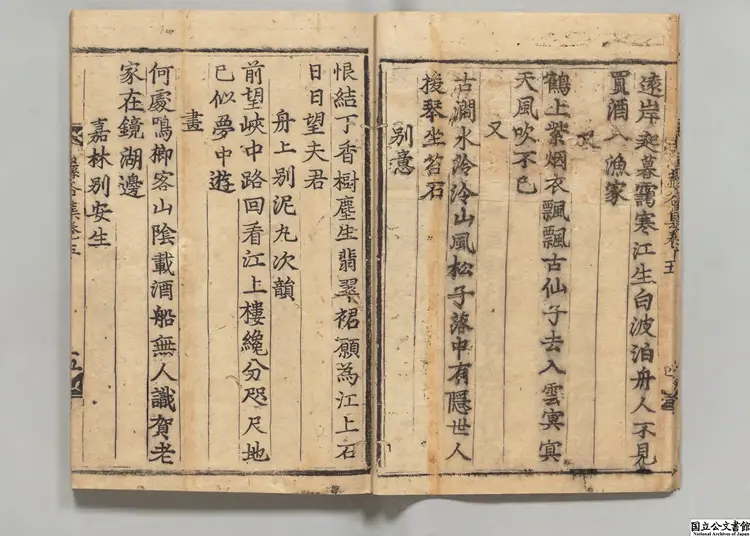 遠岸起暮靄寒江生白波泊舟人不見
買酒入漁家
又
鶴上紫烟衣飄飄古仙子去入雲冥冥
天風吹不已
又
古澗水泠泠山風松子落中有隱世人
援琴坐苔石
別意
恨結丁香樹塵生翡翠裙願為江上石
日日望夫君
舟上別泥丸次韻
前望峽中路回看江上樓纔分咫尺地
已似夢中遊
畫
何處鳴榔客山陰載酒船無人識賀老
家在鏡湖邊
嘉林別安生
五
国立公文書館
National Archives of Japan